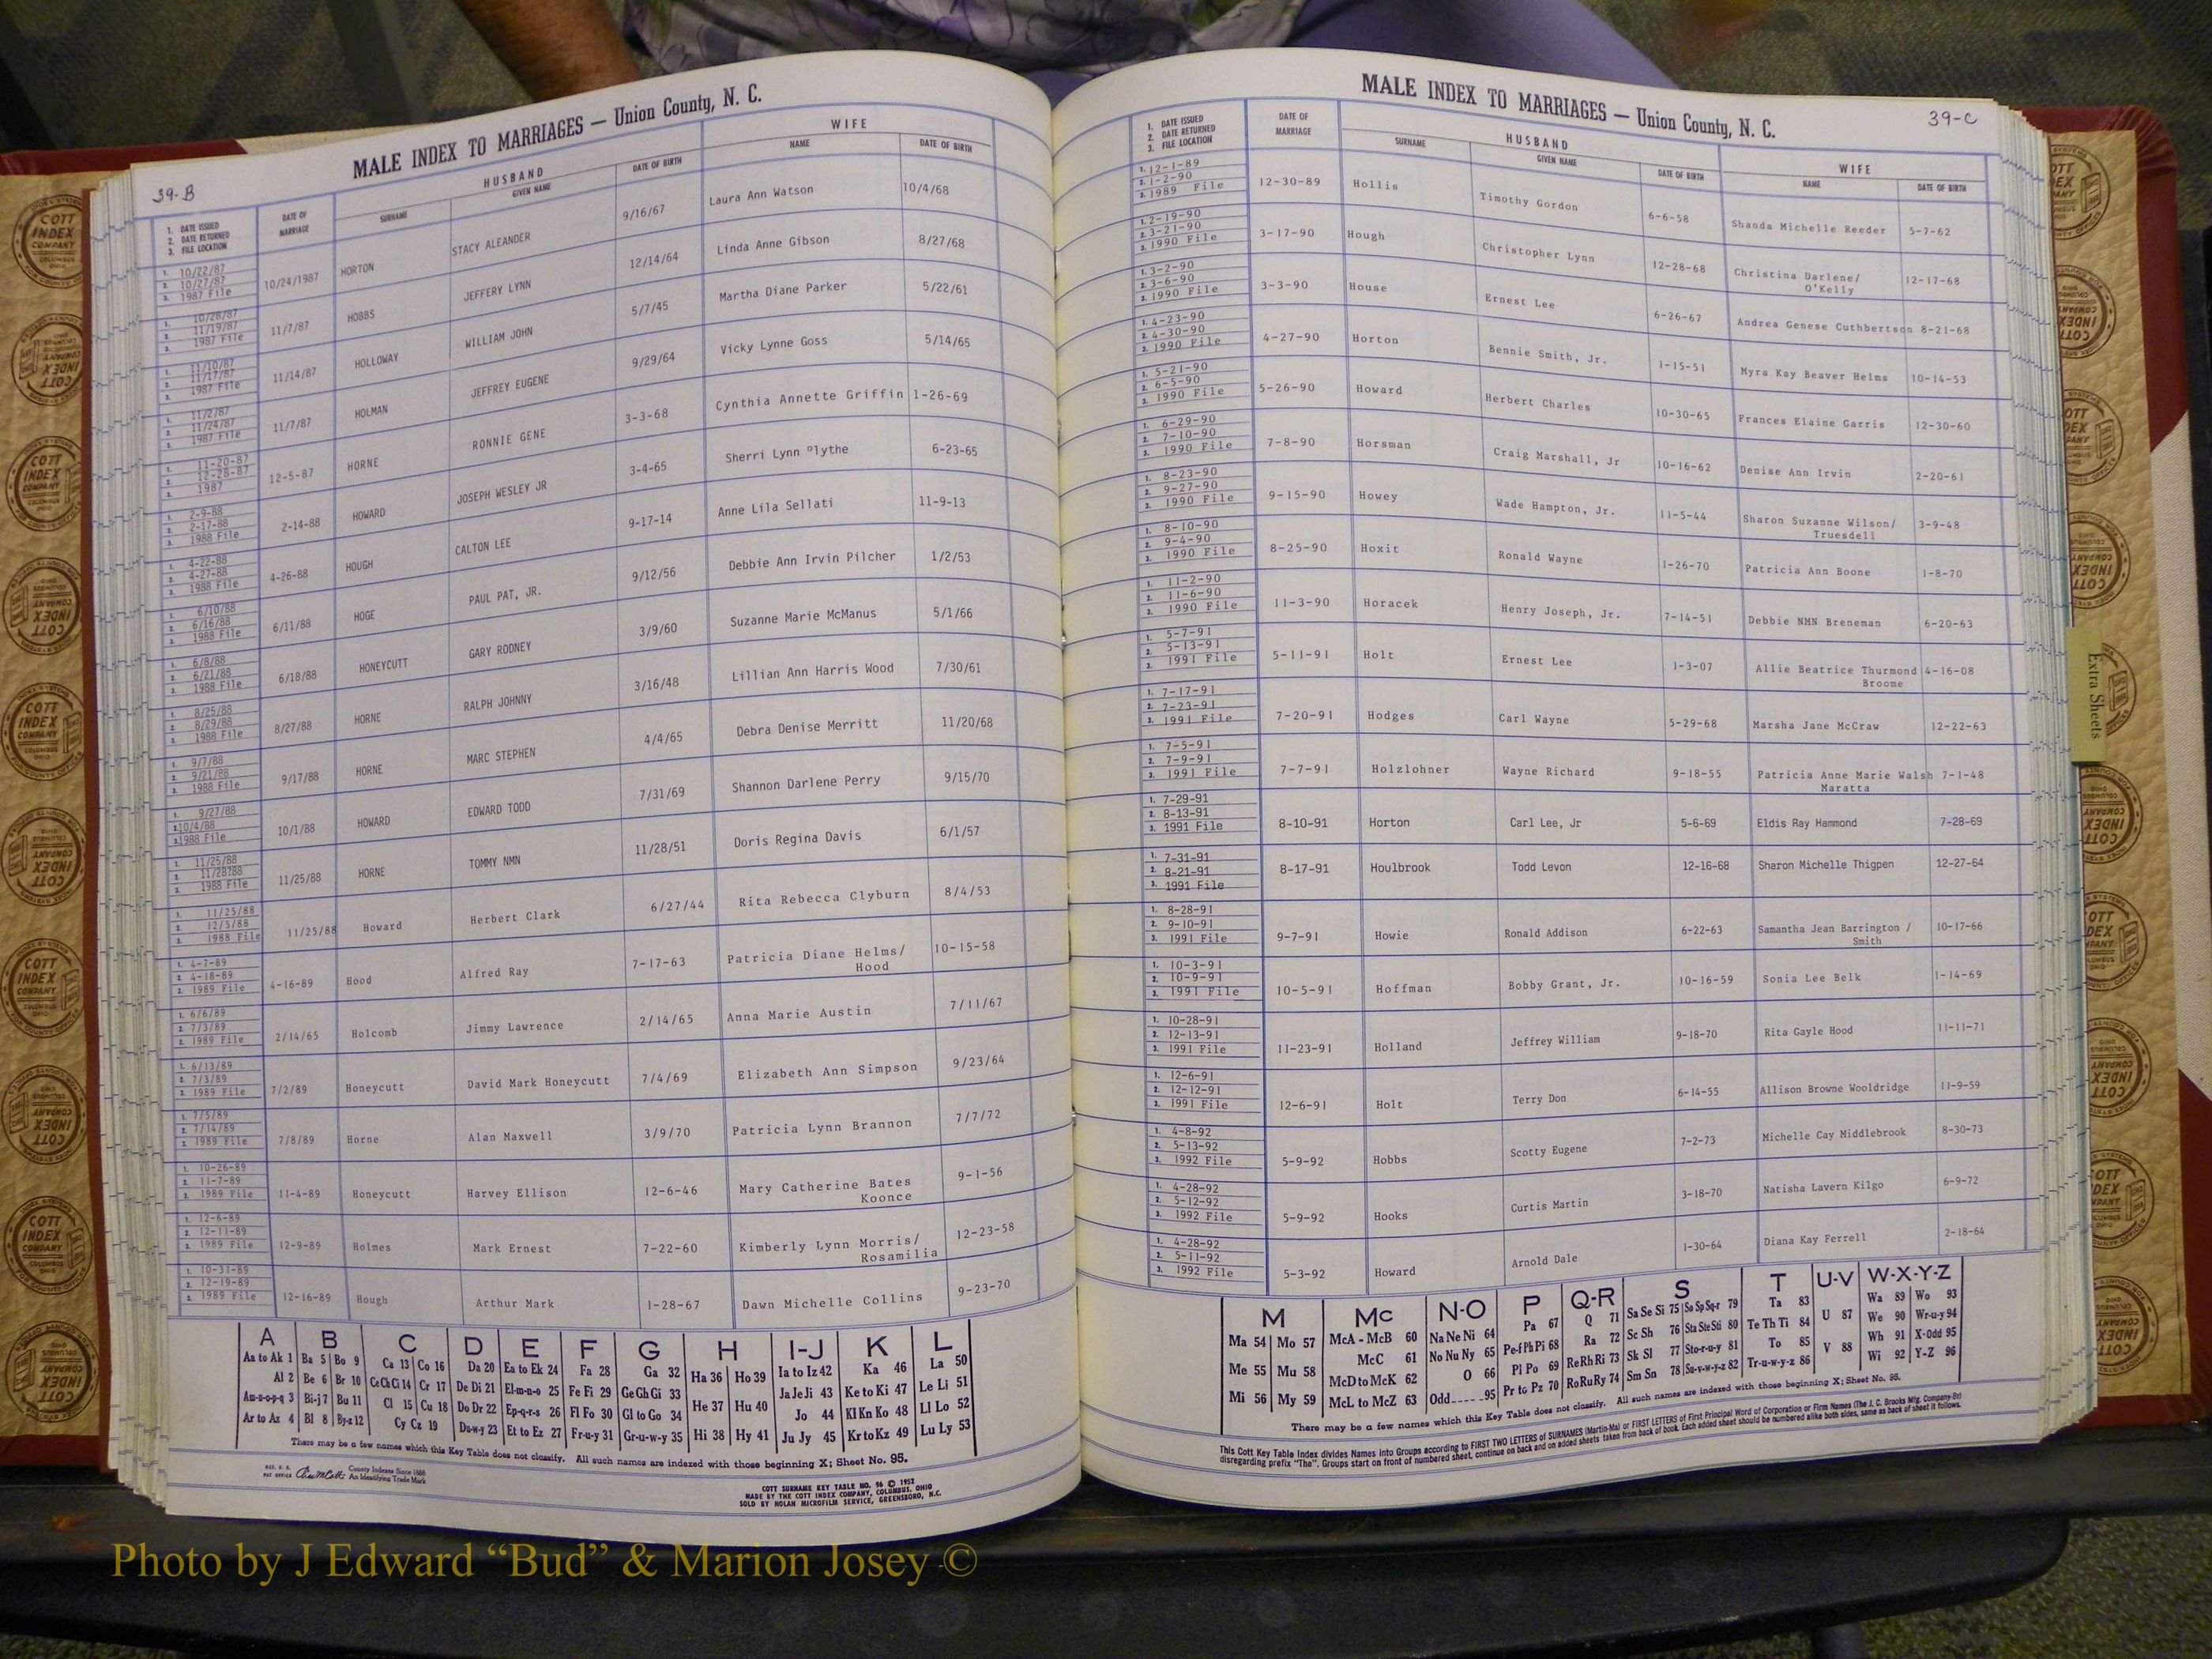 39-B
MALE INDEX TO MARRIAGES — Union County, N. C.
1. DATE ISSUED 2. DATE RETURNED 3. FILE LOCATION DATE OF MARRIAGE HUSBAND SURNAME GIVEN NAME DATE OF BIRTH WIFE NAME DATE OF BIRTH
1. 10/22/87 2. 10/27/87 3. 1987 File 10/24/1987 HORTON STACY ALEANDER 9/16/67 Laura Ann Watson 10/4/68
1. 10/28/87 2. 11/19/87 3. 1987 File 11/7/87 HOBBS JEFFERY LYNN 12/14/64 Linda Anne Gibson 8/27/68
1. 11/10/87 2. 11/17/87 3. 1987 File 11/14/87 HOLLOWAY WILLIAM JOHN 5/7/45 Martha Diane Parker 5/22/61
1. 11/2/87 2. 11/24/87 3. 1987 File 11/7/87 HOLMAN JEFFREY EUGENE 9/29/64 Vicky Lynne Goss 5/14/65
1. 11-20-87 2. 12-28-87 3. 1987 12-5-87 HORNE RONNIE GENE 3-3-68 Cynthia Annette Griffin 1-26-69
1. 2-9-88 2. 2-17-88 3. 1988 File 2-14-88 HOWARD JOSEPH WESLEY JR 3-4-65 Sherri Lynn Plythe 6-23-65
1. 4-22-88 2. 4-27-88 3. 1988 File 4-26-88 HOUGH CALTON LEE 9-17-14 Anne Lila Sellati 11-9-13
1. 6/10/88 2. 6/16/88 3. 1988 File 6/11/88 HOGE PAUL PAT, JR. 9/12/56 Debbie Ann Irvin Pilcher 1/2/53
1. 6/8/88 2. 6/21/88 3. 1988 File 6/18/88 HONEYCUTT GARY RODNEY 3/9/60 Suzanne Marie McManus 5/1/66
1. 8/25/88 2. 8/29/88 3. 1988 File 8/27/88 HORNE RALPH JOHNNY 3/16/48 Lillian Ann Harris Wood 7/30/61
1. 9/7/88 2. 9/21/88 3. 1988 File 9/17/88 HORNE MARC STEPHEN 4/4/65 Debra Denise Merritt 11/20/68
1. 9/27/88 2. 10/4/88 3. 1988 File 10/1/88 HOWARD EDWARD TODD 7/31/69 Shannon Darlene Perry 9/15/70
1. 11/25/88 2. 11/28?88 3. 1988 File 11/25/88 HORNE TOMMY NMN 11/28/51 Doris Regina Davis 6/1/57
1. 11/25/88 2. 12/5/88 3. 1988 File 11/25/88 Howard Herbert Clark 6/27/44 Rita Rebecca Clyburn 8/4/53
1. 4-7-89 2. 4-18-89 3. 1989 File 4-16-89 Hood Alfred Ray 7-17-63 Patricia Diane Helms/ Hood 10-15-58
1. 6/6/89 2. 7/3/89 3. 1989 File 2/14/65 Holcomb Jimmy Lawrence 2/14/65 Anna Marie Austin 7/11/67
1. 6/13/89 2. 7/3/89 3. 1989 File 7/2/89 Honeycutt David Mark Honeycutt 7/4/69 Elizabeth Ann Simpson 9/23/64
1. 7/5/89 2. 7/14/89 3. 1989 File 7/8/89 Horne Alan Maxwell 3/9/70 Patricia Lynn Brannon 7/7/72
1. 10-26-89 2. 11-7-89 3. 1989 File 11-4-89 Honeycutt Harvey Ellison 12-6-46 Mary Catherine Bates Koonce 9-1-56
1. 12-6-89 2. 12-11-89 3. 1989 File 12-9-89 Holmes Mark Ernest 7-22-60 Kimberly Lynn Morris/ Rosamilia 12-23-58
1. 10-31-89 2. 12-19-89 3. 1989 File 12-16-89 Hough Arthur Mark 1-28-67 Dawn Michelle Collins 9-23-70
A B C D E F G H I-J K L
Aa to Ak 1 Ba 5 Bo 9 Ca 13 Co 16 Da 20 Ea to Ek 24 Fa 28 Ga 32 Ha 36 Ho 39 Ia to Iz 42 Ka 46 La 50
Al 2 Be 6 Br 10 Ce Ch Ci 14 Cr 17 De Di 21 El-m-n-o 25 Fe Fi 29 Ge Gh Gi 33 He 37 Hu 40 Ja Je Ji 43 Ke to Ki 47 Le Li 51
Am-n-o-p-q 3 Bi-j 7 Bu 11 Cl 15 Cu 18 Do Dr 22 Ep-q-r-s 26 Fl Fo 30 Gl to Go 34 Hi 38 Hy 41 Jo 44 Kl Kn Ko 48 Ll Lo 52
Ar to Az 4 Bl 8 By-z 12 Cy Cz 19 Du-w-y 23 Et to Ez 27 Fr-u-y 31 Gr-u-w-y 35 Ju Jy 45 Kr to Kz 49 Lu Ly 53
There may be a few names which this Key Table does not classify. All such names are indexed with those beginning X; Sheet No. 95.
County Indexes Since 1888
An Identifying Trade Mark
COTT SURNAME KEY TABLE NO. 96 © 1952
MADE BY THE COTT INDEX COMPANY, COLUMBUS, OHIO
SOLD BY NOLAN MICROFILM SERVICE, GREENSBORO, N.C.
39-C
MALE INDEX TO MARRIAGES — Union County, N. C.
1. DATE ISSUED 2. DATE RETURNED 3. FILE LOCATION DATE OF MARRIAGE HUSBAND SURNAME GIVEN NAME DATE OF BIRTH WIFE NAME DATE OF BIRTH
1. 12-1-89 2. 1-2-90 3. 1989 File 12-30-89 Hollis Timothy Gordon 6-6-58 Shanda Michelle Reeder 5-7-62
1. 2-19-90 2. 3-21-90 3. 1990 File 3-17-90 Hough Christopher Lynn 12-28-68 Christina Darlene/ O'Kelly 12-17-68
1. 3-2-90 2. 3-6-90 3. 1990 File 3-3-90 House Ernest Lee 6-26-67 Andrea Genese Cuthbertson 8-21-68
1. 4-23-90 2. 4-30-90 3. 1990 File 4-27-90 Horton Bennie Smith, Jr. 1-15-51 Myra Kay Beaver Helms 10-14-53
1. 5-21-90 2. 6-5-90 3. 1990 File 5-26-90 Howard Herbert Charles 10-30-65 Frances Elaine Garris 12-30-60
1. 6-29-90 2. 7-10-90 3. 1990 File 7-8-90 Horsman Craig Marshall, Jr 10-16-62 Denise Ann Irvin 2-20-61
1. 8-23-90 2. 9-27-90 3. 1990 File 9-15-90 Howey Wade Hampton, Jr. 11-5-44 Sharon Suzanne Wilson/ Truesdell 3-9-48
1. 8-10-90 2. 9-4-90 3. 1990 File 8-25-90 Hoxit Ronald Wayne 1-26-70 Patricia Ann Boone 1-8-70
1. 11-2-90 2. 11-6-90 3. 1990 File 11-3-90 Horacek Henry Joseph, Jr. 7-14-51 Debbie NMN Breneman 6-20-63
1. 5-7-91 2. 5-13-91 3. 1991 File 5-11-91 Holt Ernest Lee 1-3-07 Allie Beatrice Thurmond Broome 4-16-08
1. 7-17-91 2. 7-23-91 3. 1991 File 7-20-91 Hodges Carl Wayne 5-29-68 Marsha Jane McCraw 12-22-63
1. 7-5-91 2. 7-9-91 3. 1991 File 7-7-91 Holzlohner Wayne Richard 9-18-55 Patricia Anne Marie Walsh Maratta 7-1-48
1. 7-29-91 2. 8-13-91 3. 1991 File 8-10-91 Horton Carl Lee, Jr 5-6-69 Eldis Ray Hammond 7-28-69
1. 7-31-91 2. 8-21-91 3. 1991 File 8-17-91 Houlbrook Todd Levon 12-16-68 Sharon Michelle Thigpen 12-27-64
1. 8-28-91 2. 9-10-91 3. 1991 File 9-7-91 Howie Ronald Addison 6-22-63 Samantha Jean Barrington / Smith 10-17-66
1. 10-3-91 2. 10-9-91 3. 1991 File 10-5-91 Hoffman Bobby Grant, Jr. 10-16-59 Sonia Lee Belk 1-14-69
1. 10-28-91 2. 12-13-91 3. 1991 File 11-23-91 Holland Jeffrey William 9-18-70 Rita Gayle Hood 11-11-71
1. 12-6-91 2. 12-12-91 3. 1991 File 12-6-91 Holt Terry Don 6-14-55 Allison Browne Wooldridge 11-9-59
1. 4-8-92 2. 5-13-92 3. 1992 File 5-9-92 Hobbs Scotty Eugene 7-2-73 Michelle Cay Middlebrook 8-30-73
1. 4-28-92 2. 5-12-92 3. 1992 File 5-9-92 Hooks Curtis Martin 3-18-70 Natisha Lavern Kilgo 6-9-72
1. 4-28-92 2. 5-11-92 3. 1992 File 5-3-92 Howard Arnold Dale 1-30-64 Diana Kay Ferrell 2-18-64
M Mc N-O P Q-R S T U-V W-X-Y-Z
Ma 54 Mo 57 McA - McB 60 Na Ne Ni 64 Pa 67 Q 71 Sa Se Si 75 So Sp Sq-r 79 Ta 83 U 87 Wa 89 Wo 93
Me 55 Mu 58 McC 61 No Nu Ny 65 Pe-f Ph Pi 68 Ra 72 Sc Sh 76 Sta Ste Sti 80 Te Th Ti 84 V 88 We 90 Wr-u-y 94
McD to McK 62 O 66 Pl Po 69 Re Rh Ri 73 Sk Sl 77 Sto-r-u-y 81 To 85 Wh 91 X-Odd 95
Mi 56 My 59 McL to McZ 63 Odd 95 Pr to Pz 70 Ro Ru Ry 74 Sm Sn 78 Su-v-w-y-z 82 Tr-u-w-y-z 86 Wi 92 Y-Z 96
There may be a few names which this Key Table does not classify. All such names are indexed with those beginning X; Sheet No. 95.
This Cott Key Table Index divides Names into Groups according to FIRST TWO LETTERS of SURNAMES (Martin-Ma) or FIRST LETTERS of First Principal Word of Corporation or Firm Names (The J. C. Brooks Mfg. Company-Br)
disregarding prefix "The". Groups start on front of numbered sheet, continue on back and on added sheets taken from back of book. Each added sheet should be numbered alike both sides, same as back of sheet it follows.
Extra Sheets
COTT INDEX COMPANY COLUMBUS OHIO
Photo by J Edward “Bud” & Marion Josey ©